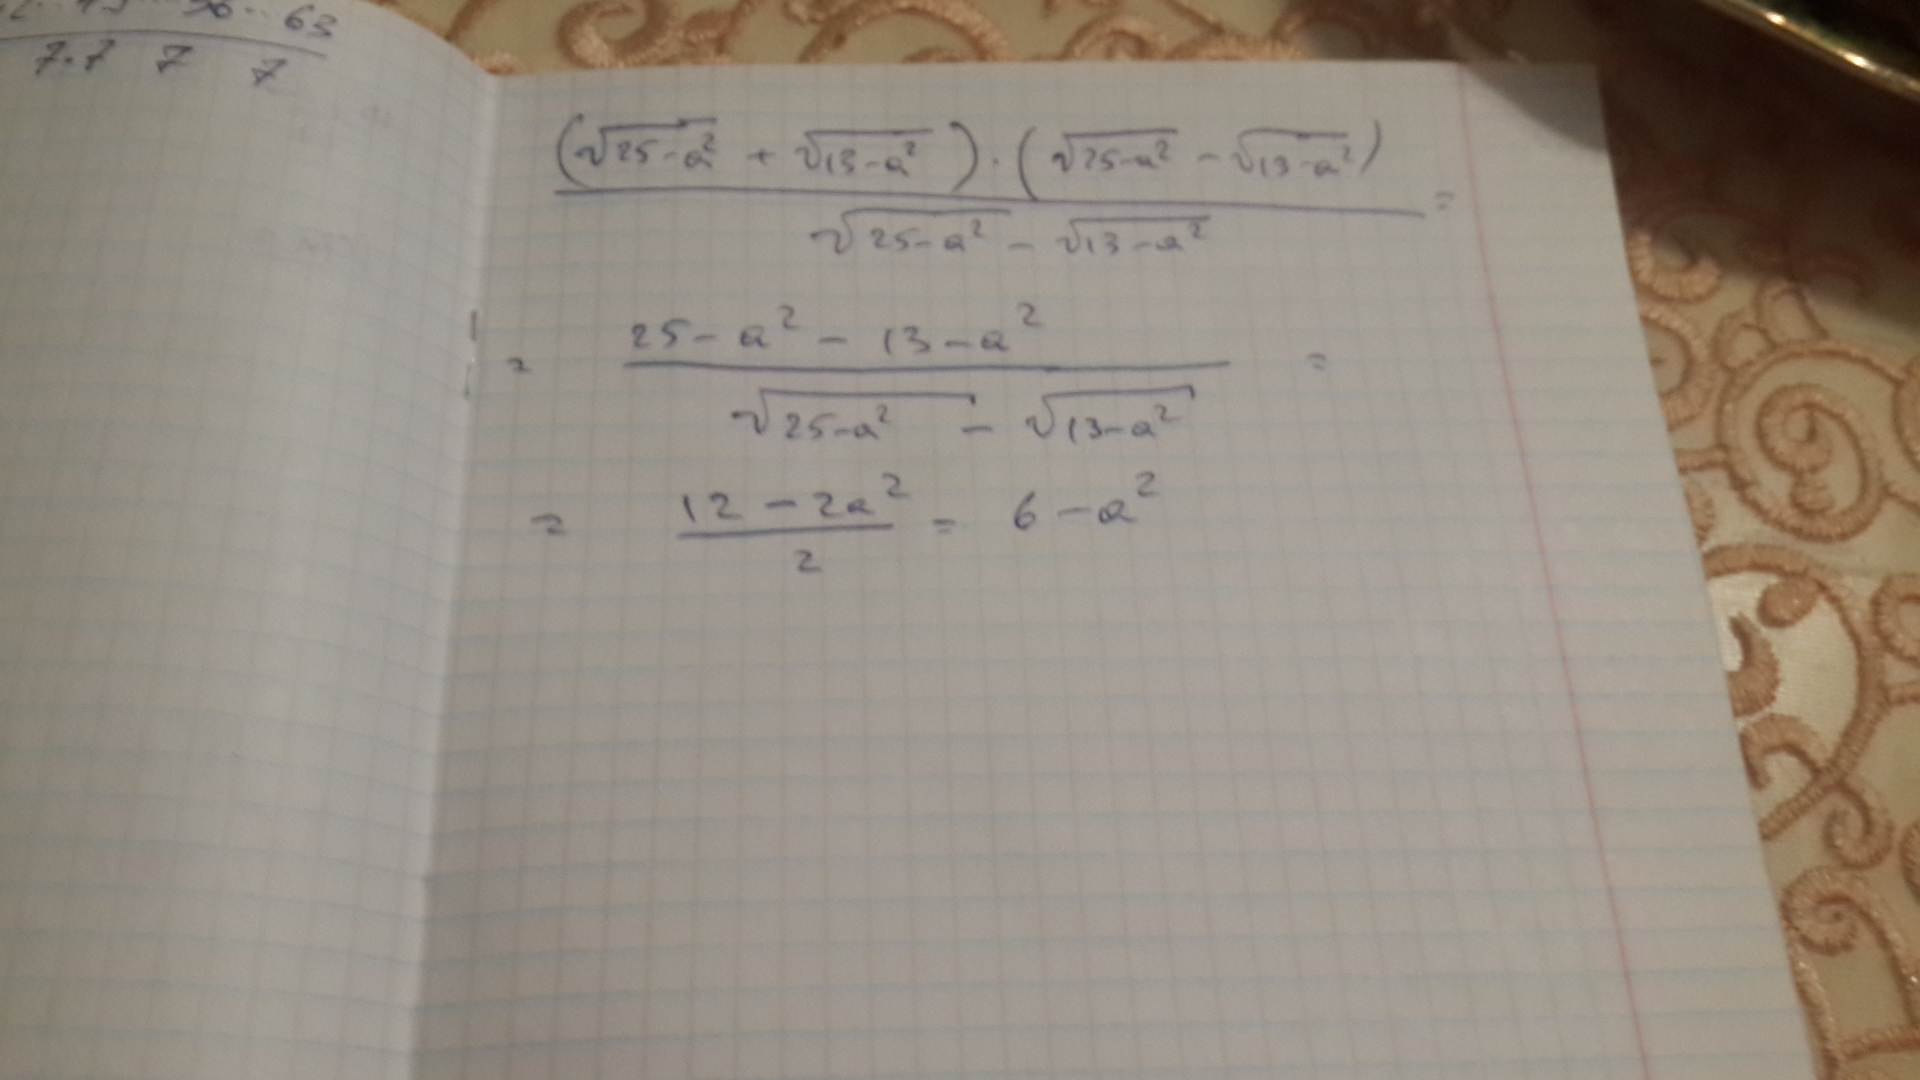 63
7·7 7 7
(√25-a² + √13-a²)·(√25-a² - √13-a²) =
√25-a² - √13-a²
= 25-a² - 13-a² =
√25-a² - √13-a²
= 12-2a² = 6-a²
2